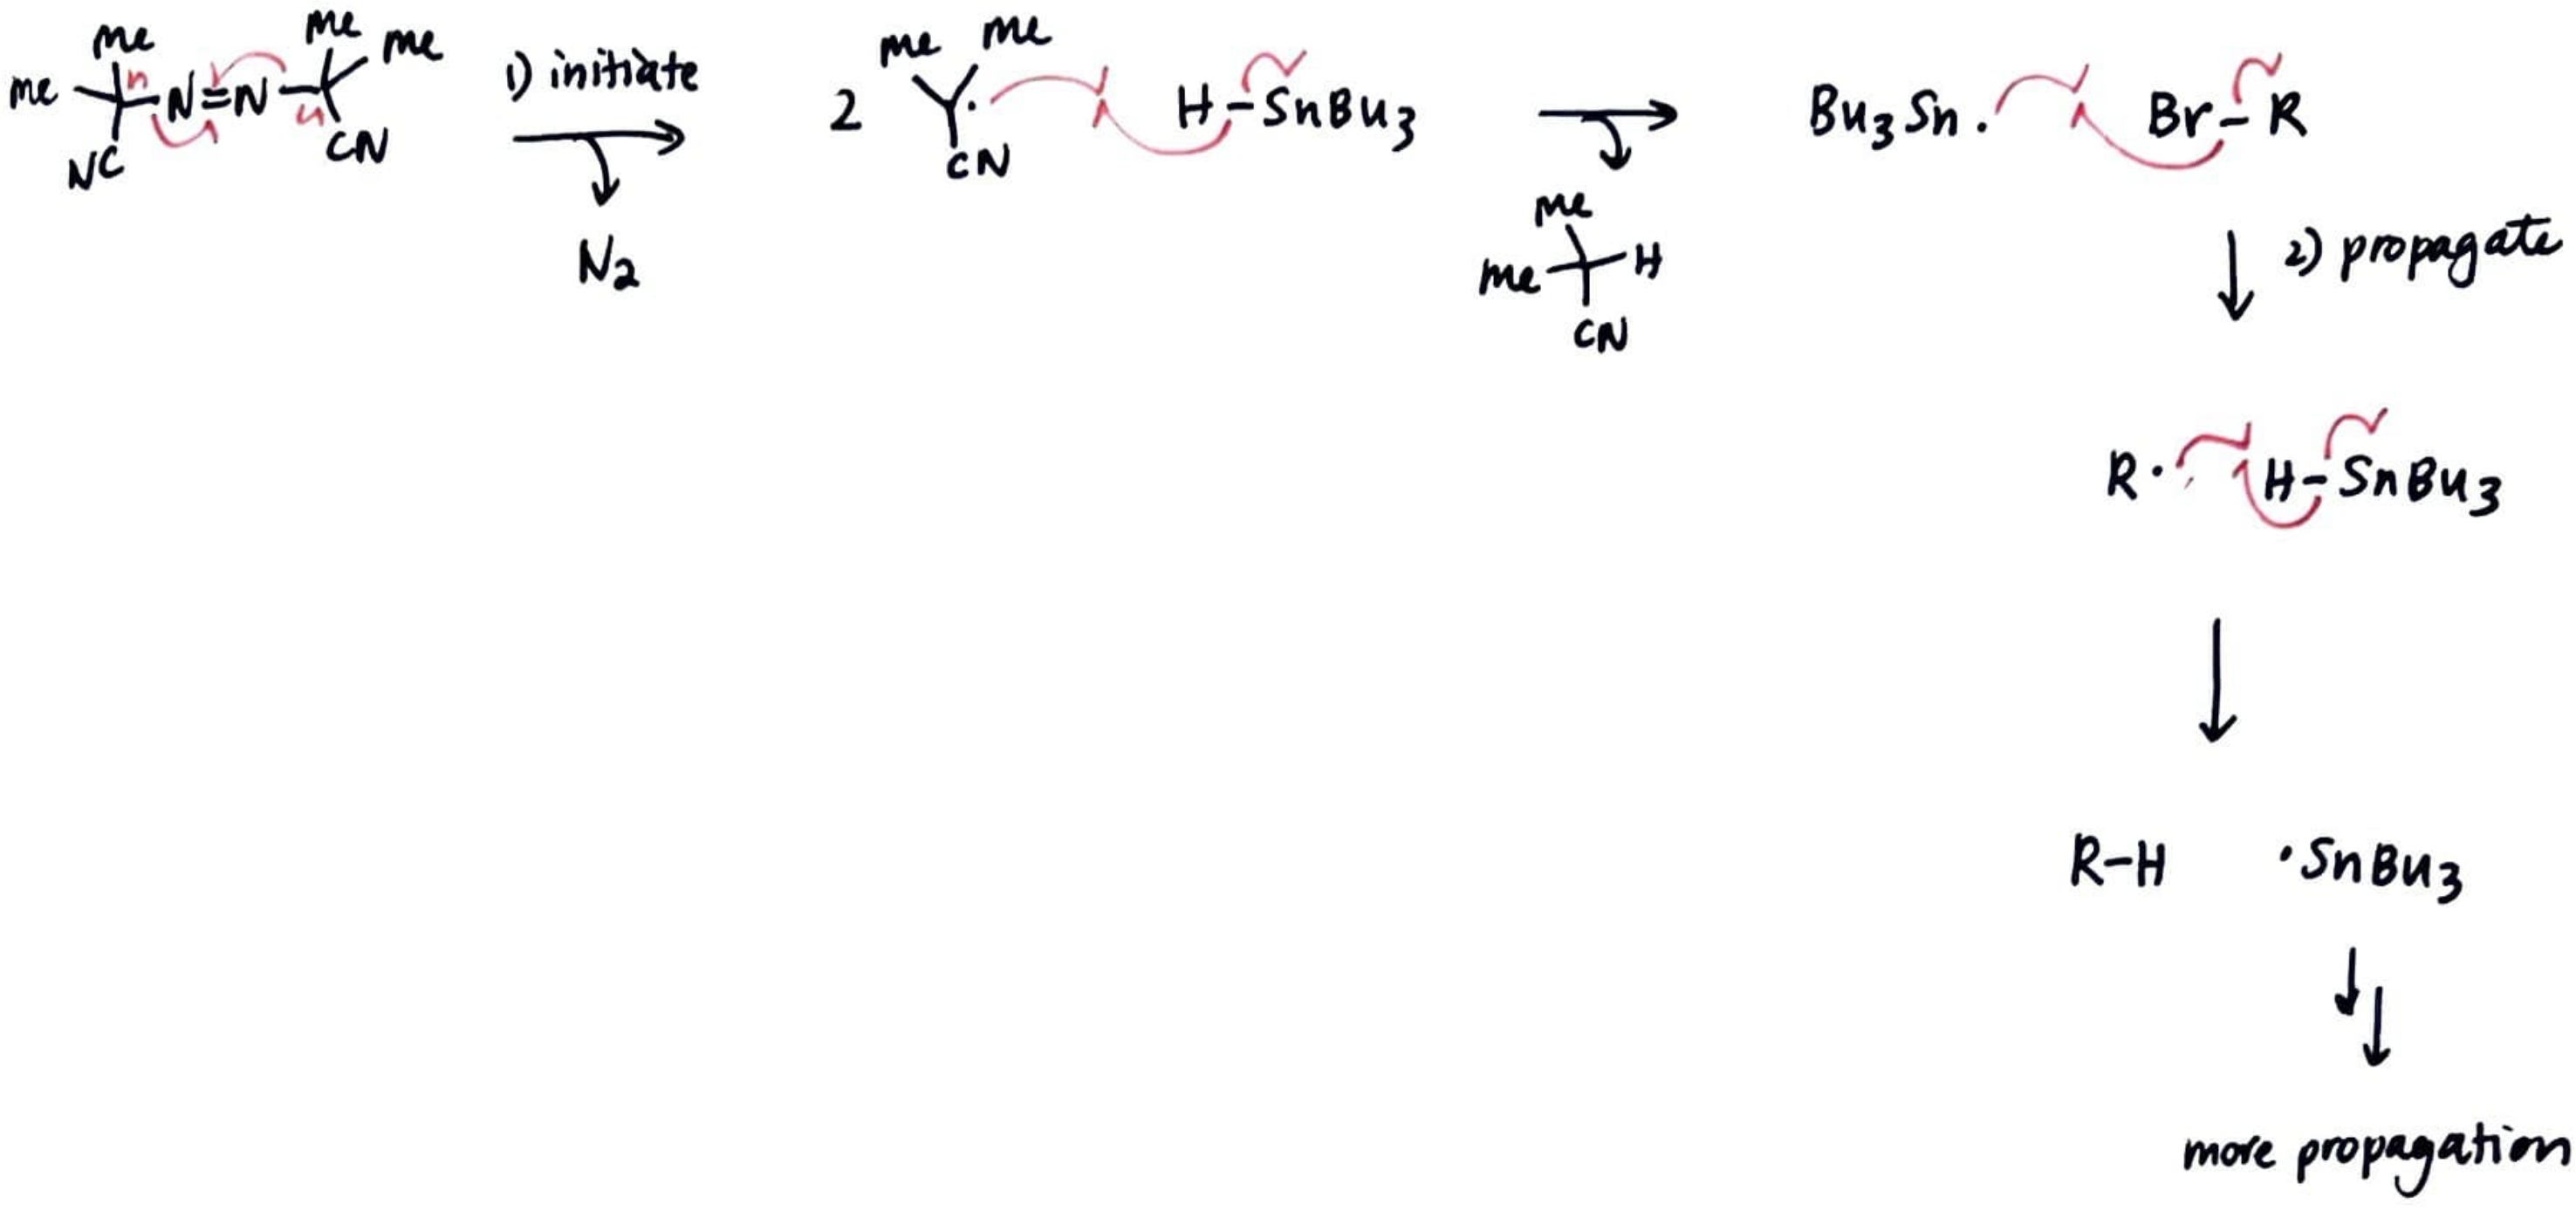 me me me me
N=N
NC CN
1) initiate
N2
2 me me CN
H-SnBu3
me me H CN
Bu3Sn· Br-R
2) propagate
R· H-SnBu3
R-H ·SnBu3
more propagation